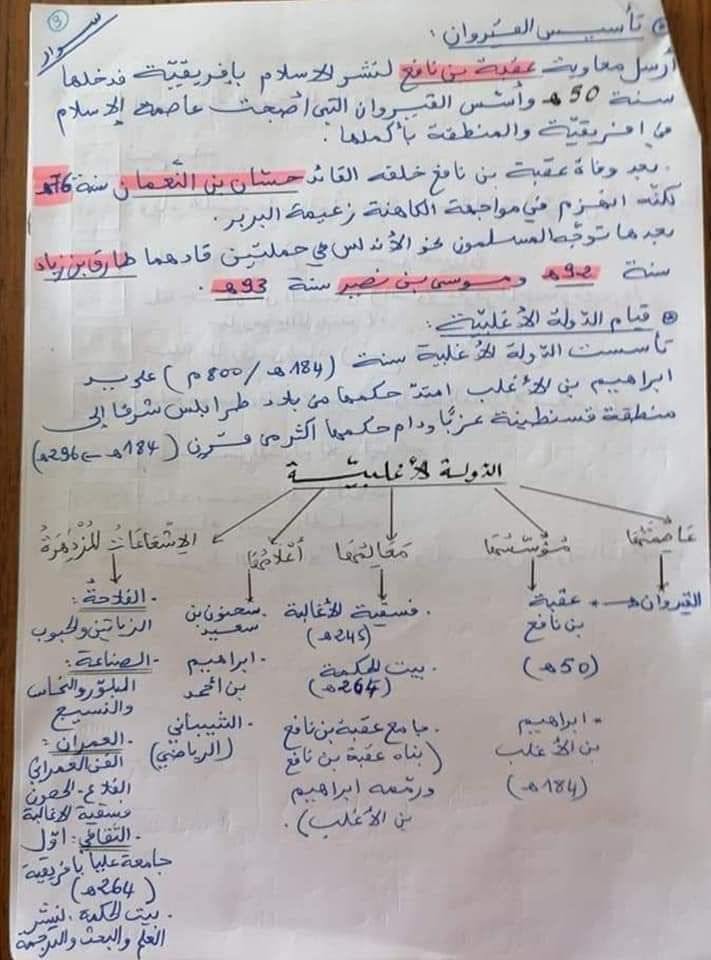 3
سوار
تأسيس القيروان:
أرسل معاوية عقبة بن نافع لنشر الاسلام بإفريقيّة فدخلها
سنة 50 هـ وأسّس القيروان التي أصبحت عاصمة الإسلام
في افريقيّة والمنطقة بأكملها.
. بعد وفاة عقبة بن نافع خلفه القائد حسّان بن النّعمان سنة 76 هـ
لكنّه انهزم في مواجهة الكاهنة زعيمة البربر.
بعدها توجّه المسلمون نحو الأندلس في حملتين قادهما طارق بن زياد
سنة 92 هـ وموسى بن نصير سنة 93 هـ.
قيام الدولة الأغلبيّة:
تأسست الدولة الأغلبية سنة (184 هـ / 800 م) على يد
ابراهيم بن الأغلب امتدّ حكمها من بلاد طرابلس شرقا إلى
منطقة قسنطينة غربًا ودام حكمها أكثر من قرن (184 هـ ← 296 هـ)
الدولة الأغلبيّة
عاصمتها
القيروان
مؤسّسها
عقبة
بن نافع
(50 هـ)
. ابراهيم
بن الأغلب
(184 هـ)
معالمها
. فسقية الأغالبة
(245 هـ)
. بيت الحكمة
(264 هـ)
. جامع عقبة بن نافع
(بناه عقبة بن نافع
ورمّمه ابراهيم
بن الأغلب).
أعلامها
. سحنون بن
سعيد
. ابراهيم
بن احمد
. الشيباني
(الرياضي)
الإشعاعات المزدهرة
. الفلاحة:
الزياتين والحبوب
. الصناعة:
البلّور والنحاس
والنسيج
. العمران:
الفن المعماري
القلاع - الحصون
فسقية الأغالبة
. الثقافي: أوّل
جامعة عليا بافريقية
(264 هـ)
. بيت الحكمة: لنشر
العلم والبحث والترجمة